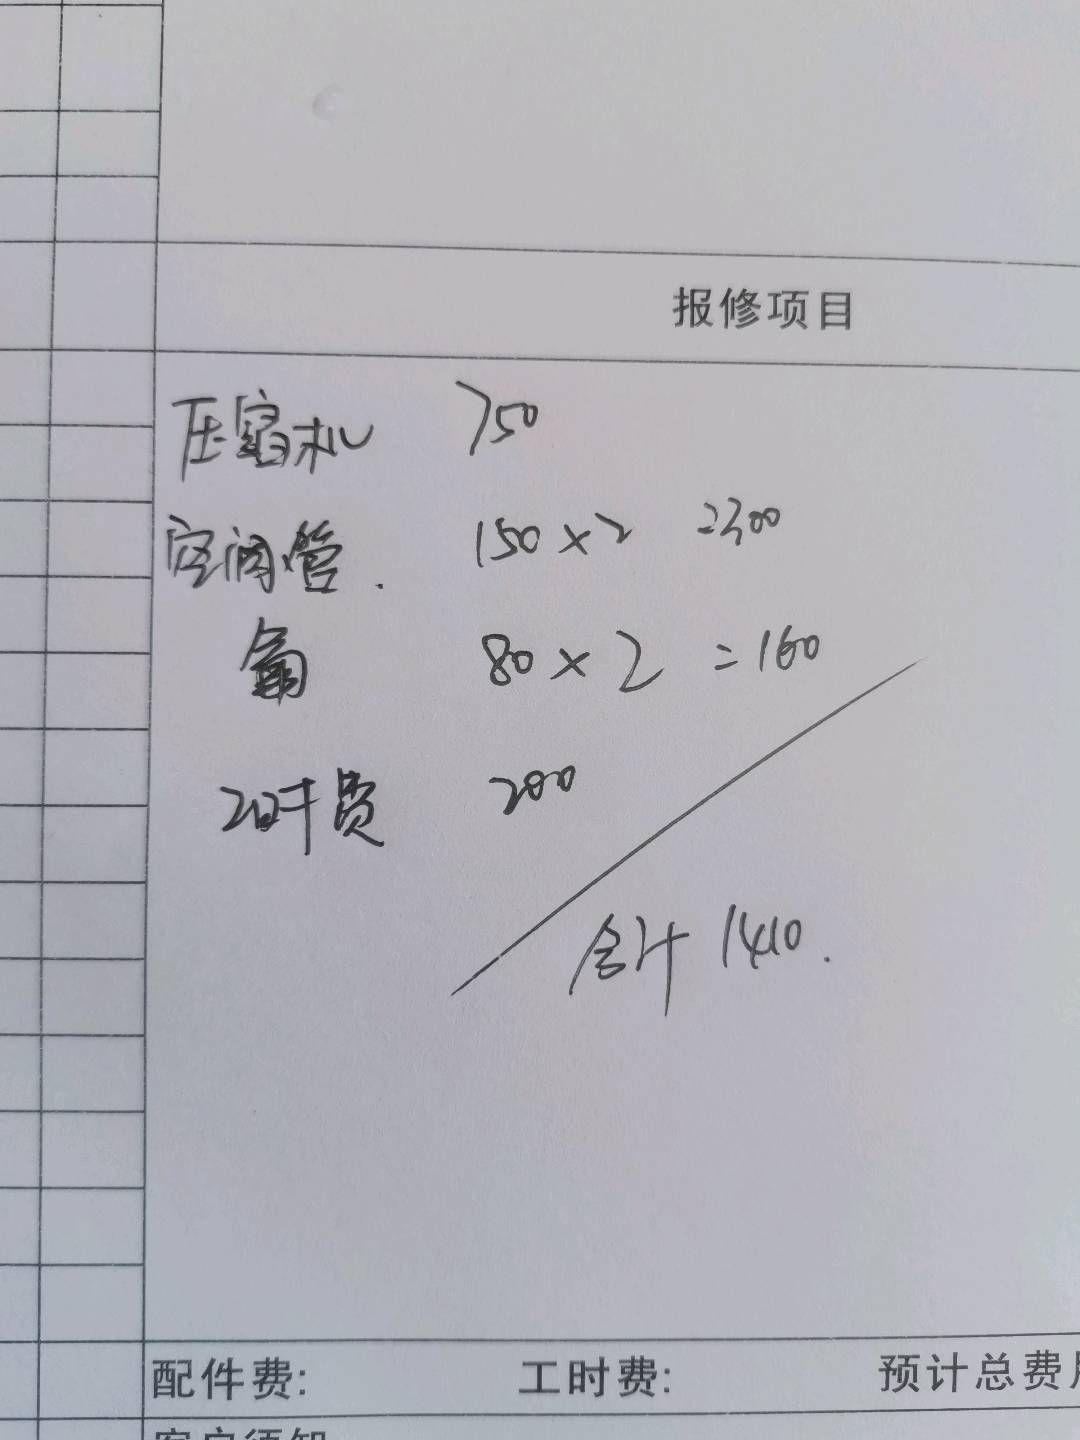 报修项目
压缩机 750
空调管. 150×2 =300
80×2 =160
工时费 200
合计 1410.
配件费: 工时费: 预计总费用
客户须知